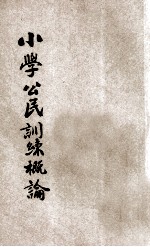 小學公民訓練概論